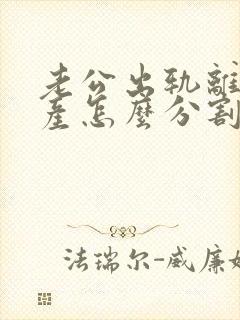 老公出轨離
產怎麼分割
法瑞尔-威廉